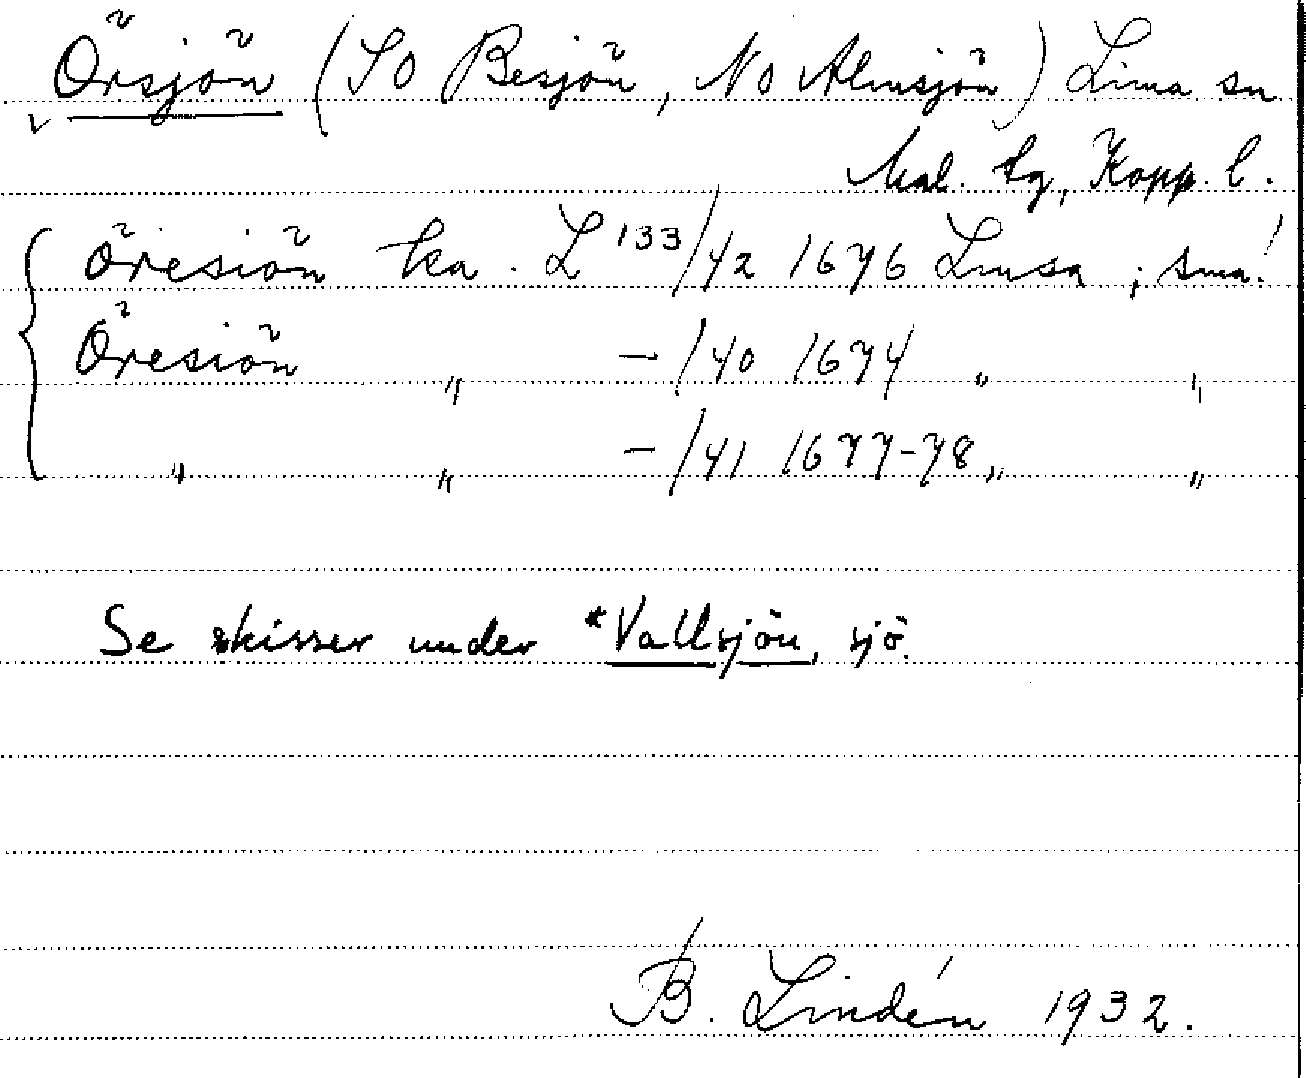 Örsjön (SO Besjön, NO Almsjön) Lima sn
Mal. tg, Kopp. l.
öresiön ka. L 133/42 1676 Limsa, sma!
Öresiön " -/40 1674 " "
" " -/41 1677-78 " "
Se skisser under *Vallsjön, sjö.
B. Lindén 1932.